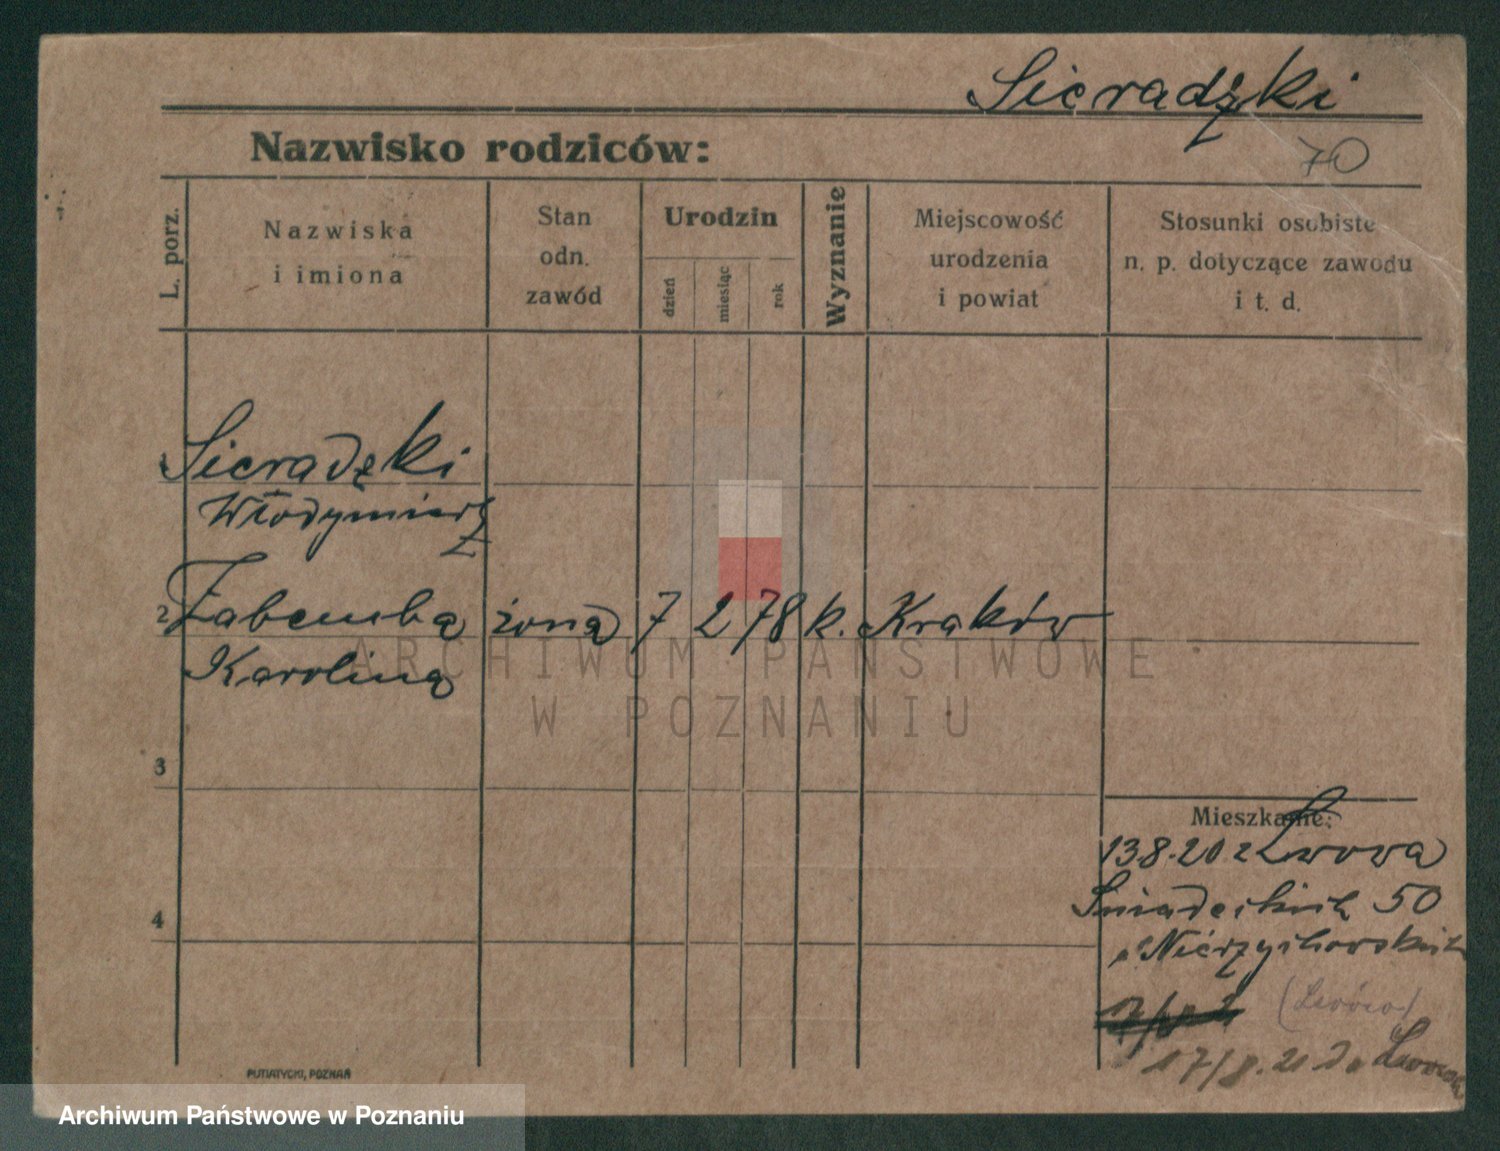 Sieradzki
70
Nazwisko rodziców:
L. porz.
Nazwiska
i imiona
Stan
odn.
zawód
Urodzin
dzień
miesiąc
rok
Wyznanie
Miejscowość
urodzenia
i powiat
Stosunki osobiste
n. p. dotyczące zawodu
i t. d.
Sieradzki
Włodymierz
2 Zabemba żona 7 2 78 k. Kraków
Karolina
3
4
Mieszkanie:
13.8.20 z Lwowa
Śniadeckich 50
(Lwów)
17/8.21 do Lwowa
PUTIATYCKI, POZNAŃ
ARCHIWUM PAŃSTWOWE
W POZNANIU
Archiwum Państwowe w Poznaniu